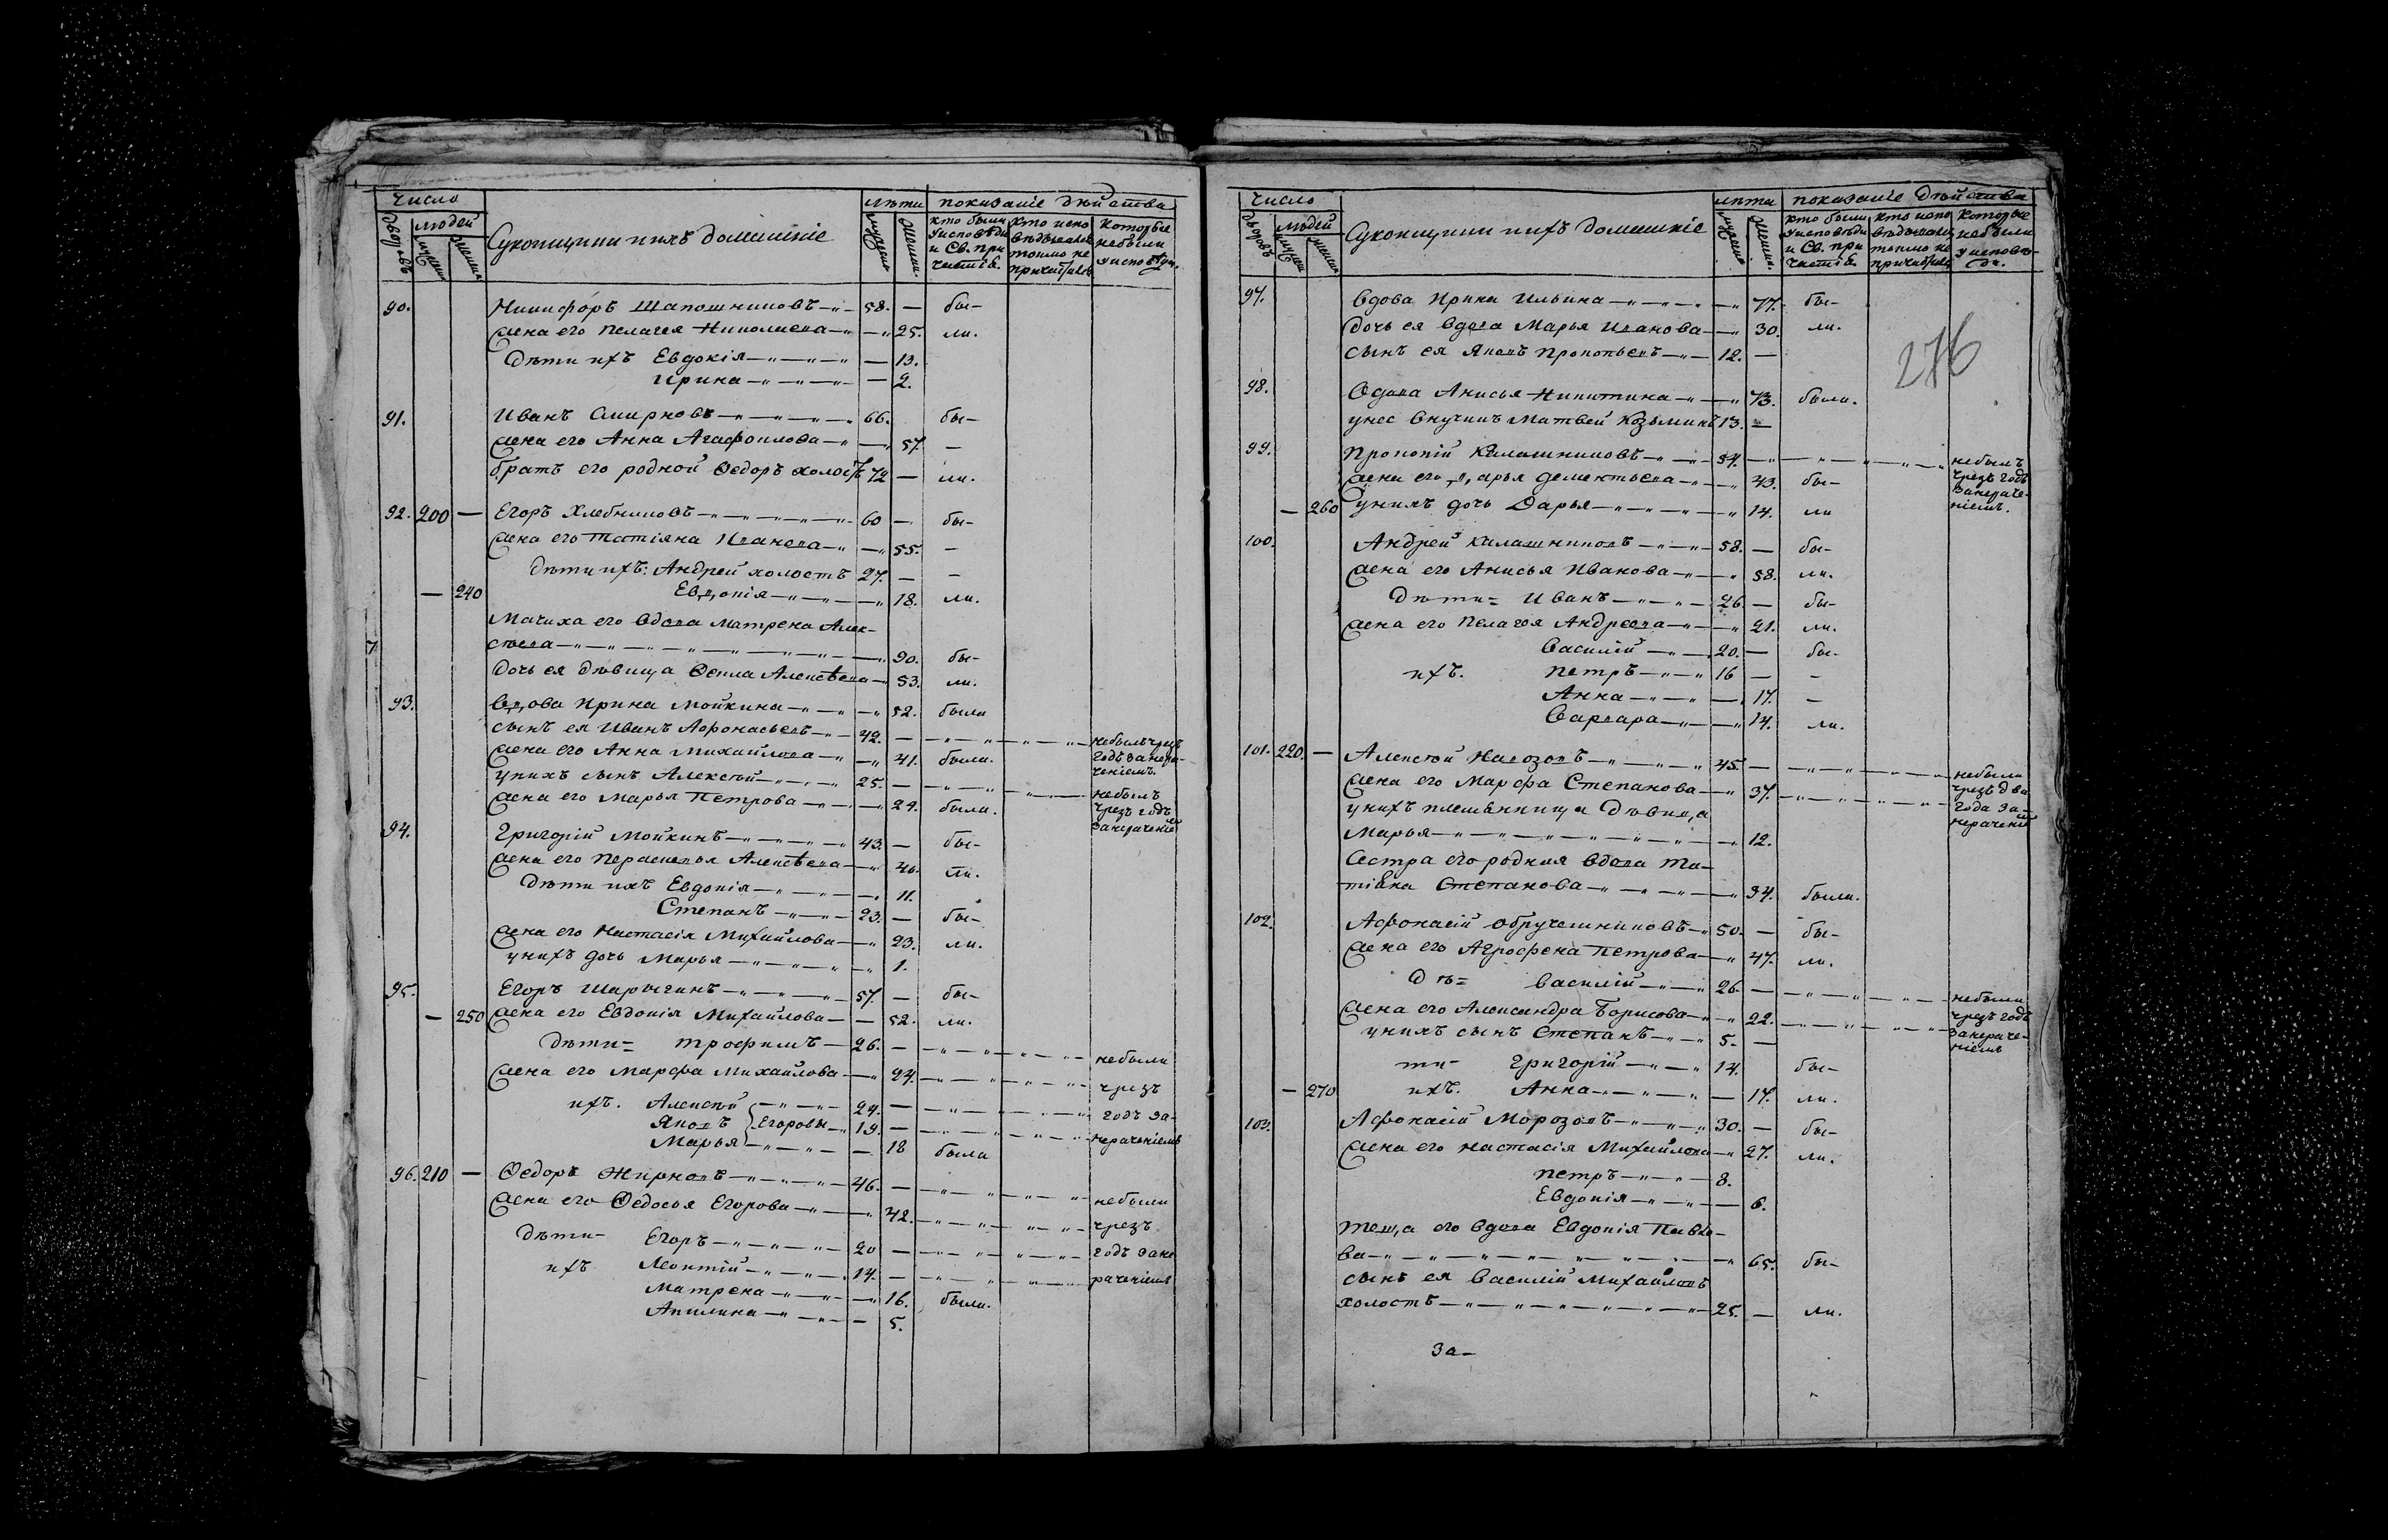 число лѣта показаніе дѣйства
дворовъ людей мужеск женск Суконщики ихъ домашніе мужеска женск. кто были уисповѣди и Св. при частія. кто испо вѣдывался токмо не причастился которые небыли уисповѣди.
90. Никифоръ Шапошниковъ 58. — бы-
жена его Пелагея Николаева 25. ли.
Дѣти ихъ Евдокія — 13.
Ирина — 2.
91. Иванъ Смирновъ 66. бы-
жена его Анна Агафонлова 57. —
братъ его родной Ѳедоръ холостъ 72 — ли.
92. 200 — Егоръ Хлебниковъ 60 — бы-
жена его Татіяна Иванова 55. —
Дѣти ихъ: Андрей холостъ 27. — —
— 240 Евдокія 18. ли.
Мачиха его вдова Матрена Алек-
сѣева 90. бы-
Дочь ея дѣвица Ѳекла Алексѣева 53. ли.
93. вдова Ирина Мойкина 52. была
сынъ ея Иванъ Афонасьевъ 42. — небылъ чрезъ
жена его Анна Михайлова 41. была. годъ занера-
унихъ сынъ Алексѣй 25. — ченіемъ.
небылъ
жена его Марья Петрова 24. была. чрезъ годъ
занераченіемъ
94. Григорій Мойкинъ 43. — бы-
жена его Перасковья Алексѣева 40. ли.
Дѣти ихъ Евдокія 11.
Степанъ 23. — бы-
жена его Настасія Михайлова 23. ли.
унихъ дочь Марья 1.
95. Егоръ Шарыгинъ 57. — бы-
— 250 жена его Евдокія Михайлова 52. ли.
Дѣти= Трофимъ 26. — небыли
жена его Марфа Михайлова 24. чрезъ
ихъ. Алексѣй 24. — годъ за-
Яковъ Егоровы 19. — нераченіемъ
Марья — 18 была
96. 210 — Ѳедоръ Жирновъ 46. — небыли
жена его Ѳедосья Егорова 42. чрезъ
Дѣти- Егоръ 20 — годъ зане
ихъ Леонтій 14. — раченіемъ
Матрена 16. была.
Акилина — 5.
276
число лѣта показаніе дѣйства
дворовъ людей мужеск женска Суконщики ихъ домашніе мужеска женска. кто были уисповѣди и Св. при частія. кто испо вѣдывался токмо не причастился которые небыли уисповѣ- ди.
97. вдова Ирина Ильина 77. бы-
дочь ея вдова Марья Иванова 30. ли.
сынъ ея Яковъ Прокопьевъ 12. —
98. Вдова Анисья Никитина 73. была.
унее внучикъ Матвей Козьминъ 13. —
99. Прокопій Калашниковъ 54. — небылъ
жена его Дарья Дементьева 43. бы- чрезъ годъ
занераче-
— 260 унихъ дочь Дарья 14. ли ніемъ.
100. Андрей Калашниковъ 58. — бы-
жена его Анисья Иванова 58. ли.
Дѣти= Иванъ 26. — бы-
жена его Пелагея Андреева 21. ли.
Василій 20. — бы-
ихъ. Петръ 16 — -
Анна — 17. -
Варвара 14. ли.
101. 220. — Алексѣй Навозовъ 45. — небыли
жена его Марфа Степанова 37. чрезъ два
унихъ племянница дѣвица года за-
нераченіемъ
Марья 12.
Сестра его родная вдова Та-
тіяна Степанова 34. была.
102. Афонасій Обручешниковъ 50. — бы-
жена его Агрофена Петрова 47. ли.
дѣ= Василій 26. — небыли
жена его Александра Борисова 22. чрезъ годъ
унихъ сынъ Степанъ 5. — занераче-
ніемъ
ти- Григорій 14. бы-
— 270 ихъ. Анна — 17. ли.
103. Афонасій Морозовъ 30. — бы-
жена его Настасія Михайлова 27. ли.
Петръ 8.
Евдокія — 6.
теща его вдова Евдокія Павло-
ва 65. бы-
сынъ ея Василій Михайловъ
холостъ 25. — ли.
За-